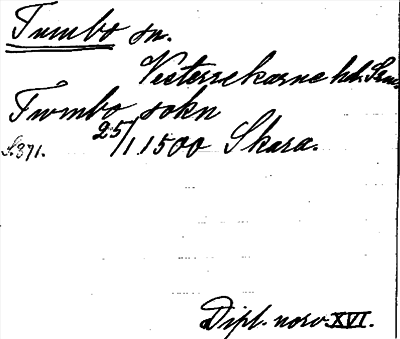 Tumbo sn.
Vesterrekarne hd. Srm.
Twmbo sokn
25/1 1500 Skara.
S. 371.
Dipl. norv. XVI.